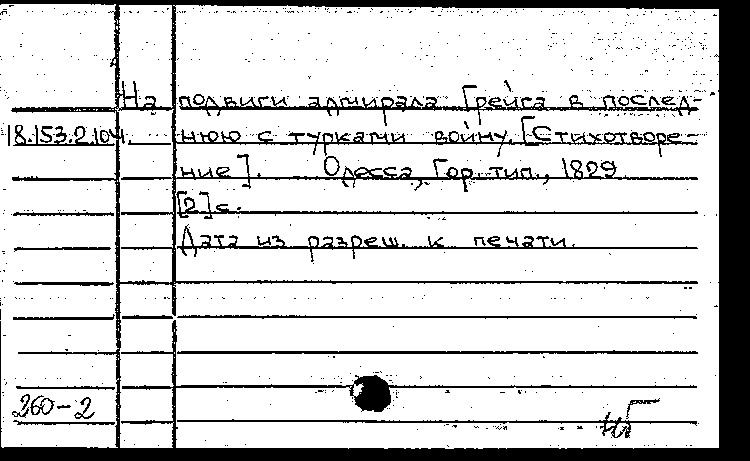 На подвиги адмирала Грейга в послед-
18.153.2.104. нюю с турками войну. [Стихотворе-
ние]. Одесса, Гор. тип., 1829
[2] с.
Дата из разреш. к печати.
260-2